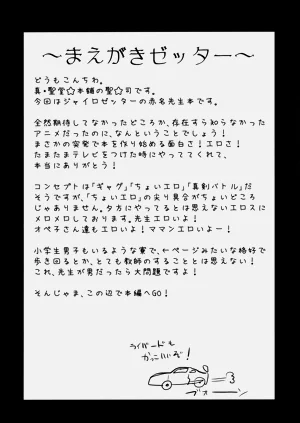 ～まえがきゼッター～
どうもこんちわ。
真・聖堂☆本舗の聖☆司です。
今回はジャイロゼッターの赤名先生本です。
全然期待してなかったどころか、存在すら知らなかった
アニメだったのに、なんということでしょう！
まさかの突発で本を作り始める面白さ！エロさ！
たまたまテレビをつけた時にやっててくれて、
本当にありがとう！
コンセプトは「ギャグ」「ちょいエロ」「真剣バトル」だ
そうですが、「ちょいエロ」の尖り具合がちょいどころ
じゃありません。夕方にやってるとは思えないエロスに
メロメロしております。先生エロいよ！
オペ子さん達もエロいよ！ママンエロいよー！
小学生男子もいるような寮で、←ページみたいな格好で
歩き回るとか、とても教師のすることとは思えない！
これ、先生が男だったら大問題ですよ！
そんじゃま、この辺で本編へGO！
ライバードも
かっこいいぞ！
ブオーーン